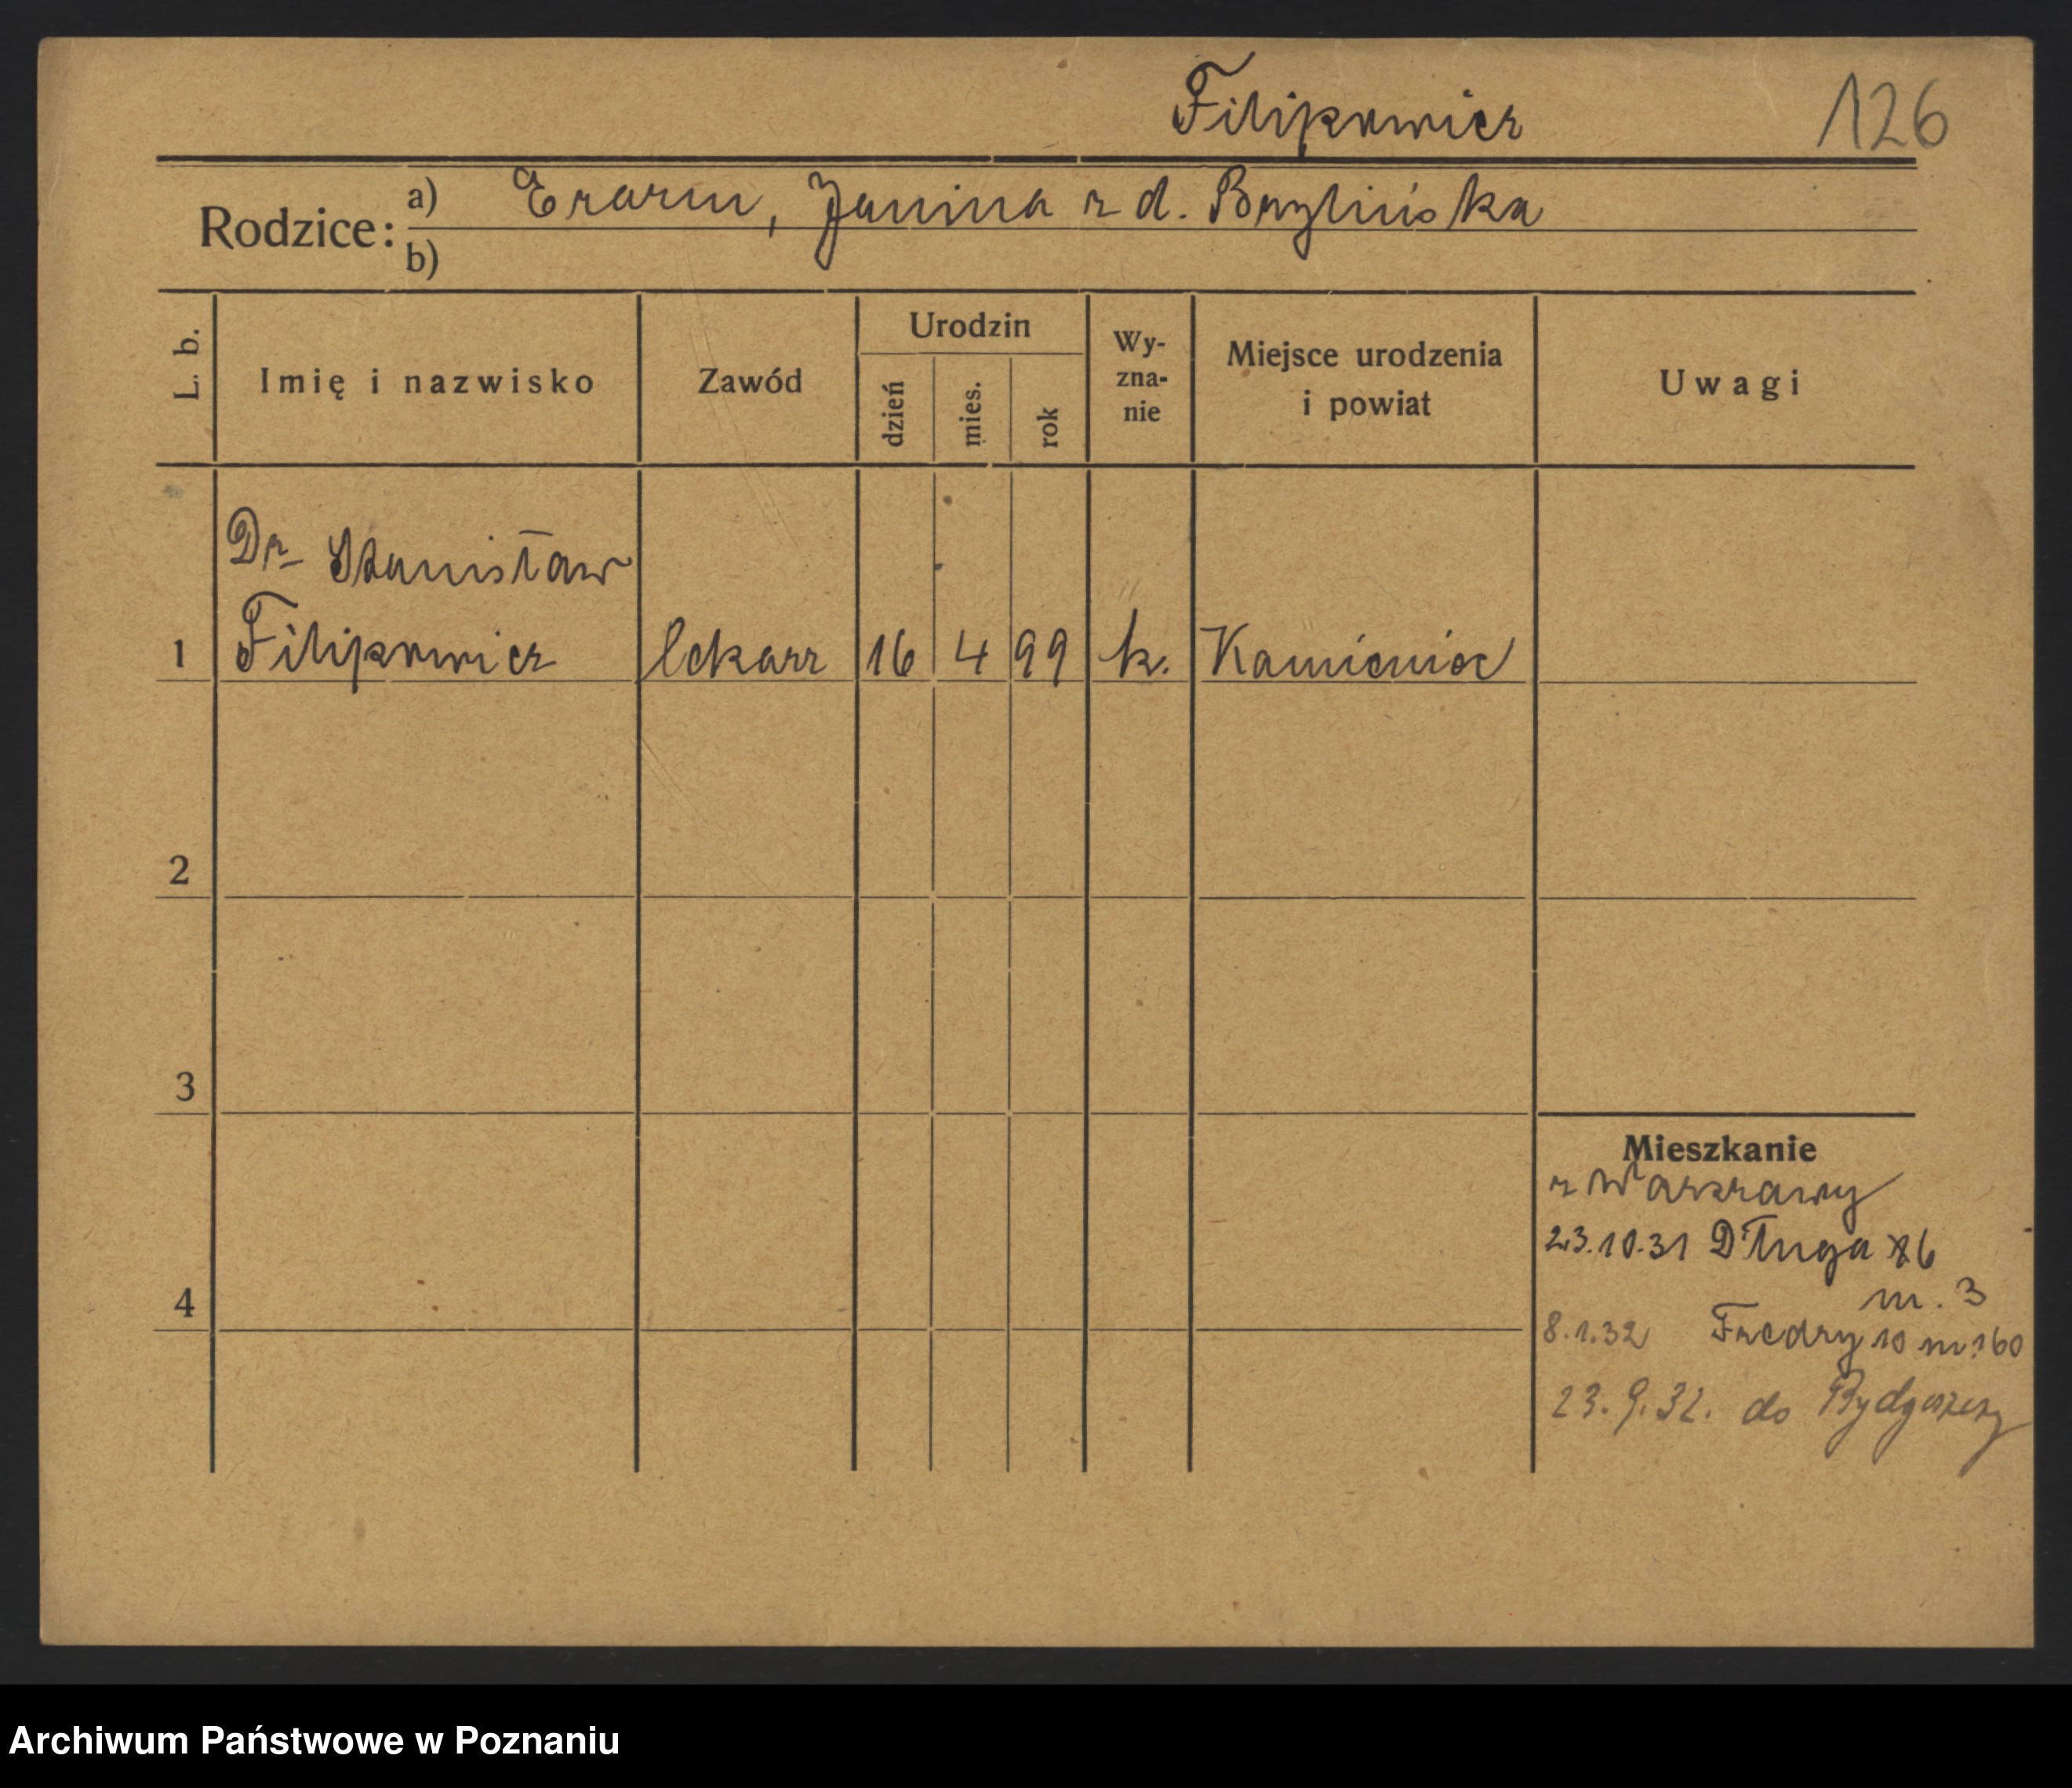 Filipowicz 126
Rodzice: a) Erazm, Janina z d. Brzylińska
b)
L. b. Imię i nazwisko Zawód Urodzin dzień mies. rok Wy-zna-nie Miejsce urodzenia i powiat Uwagi
Dr Stanisław
1 Filipowicz lekarz 16 4 99 k. Kamieniec
2
3
Mieszkanie
z Warszawy
23.10.31 Długa 6
m. 3
4
8.1.32 Fredry 10 m. 160
23.9.32. do Bydgoszczy
Archiwum Państwowe w Poznaniu